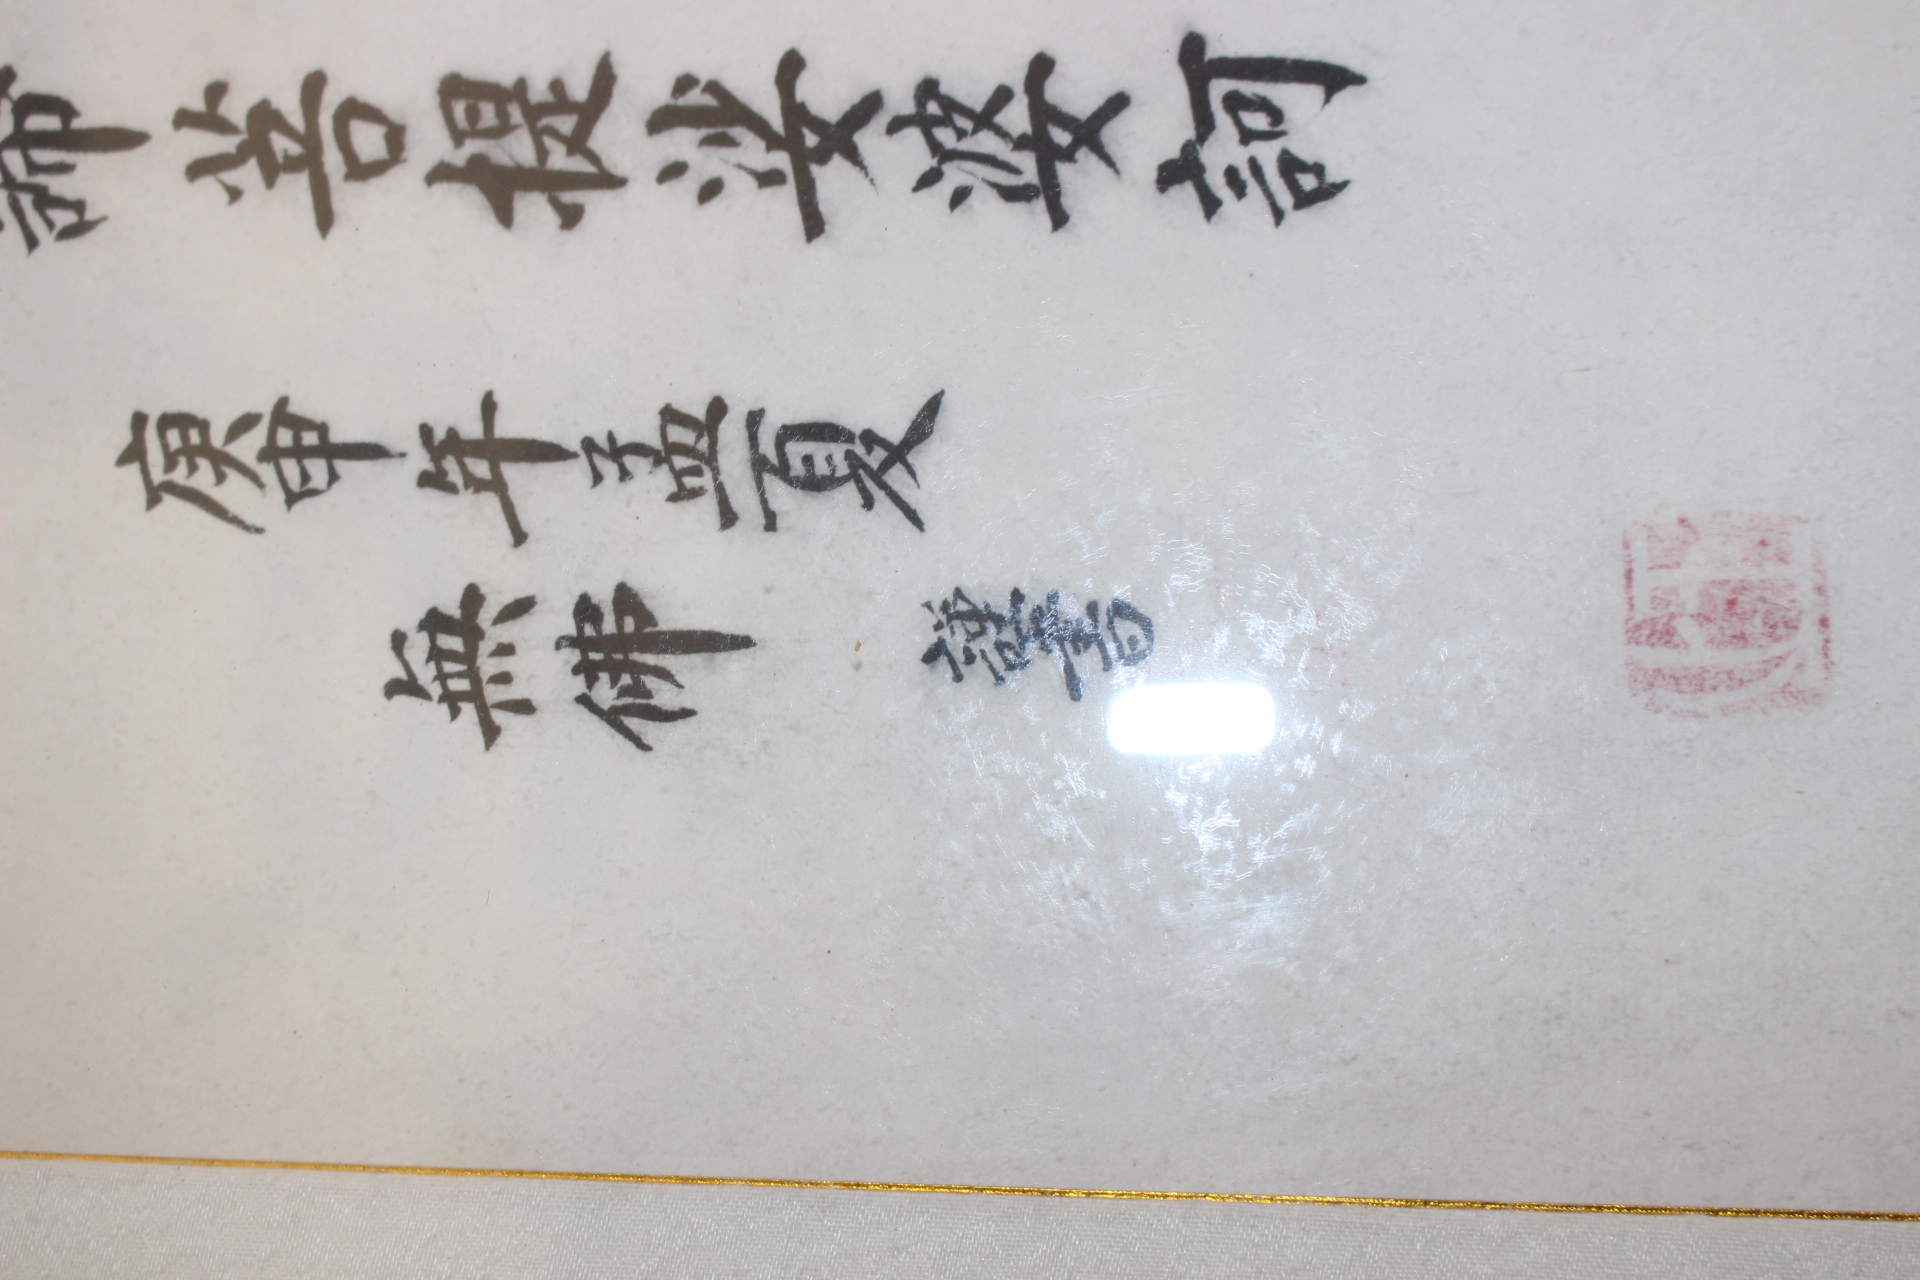 諦菩提娑婆訶
庚申年孟夏
無佛 謹書